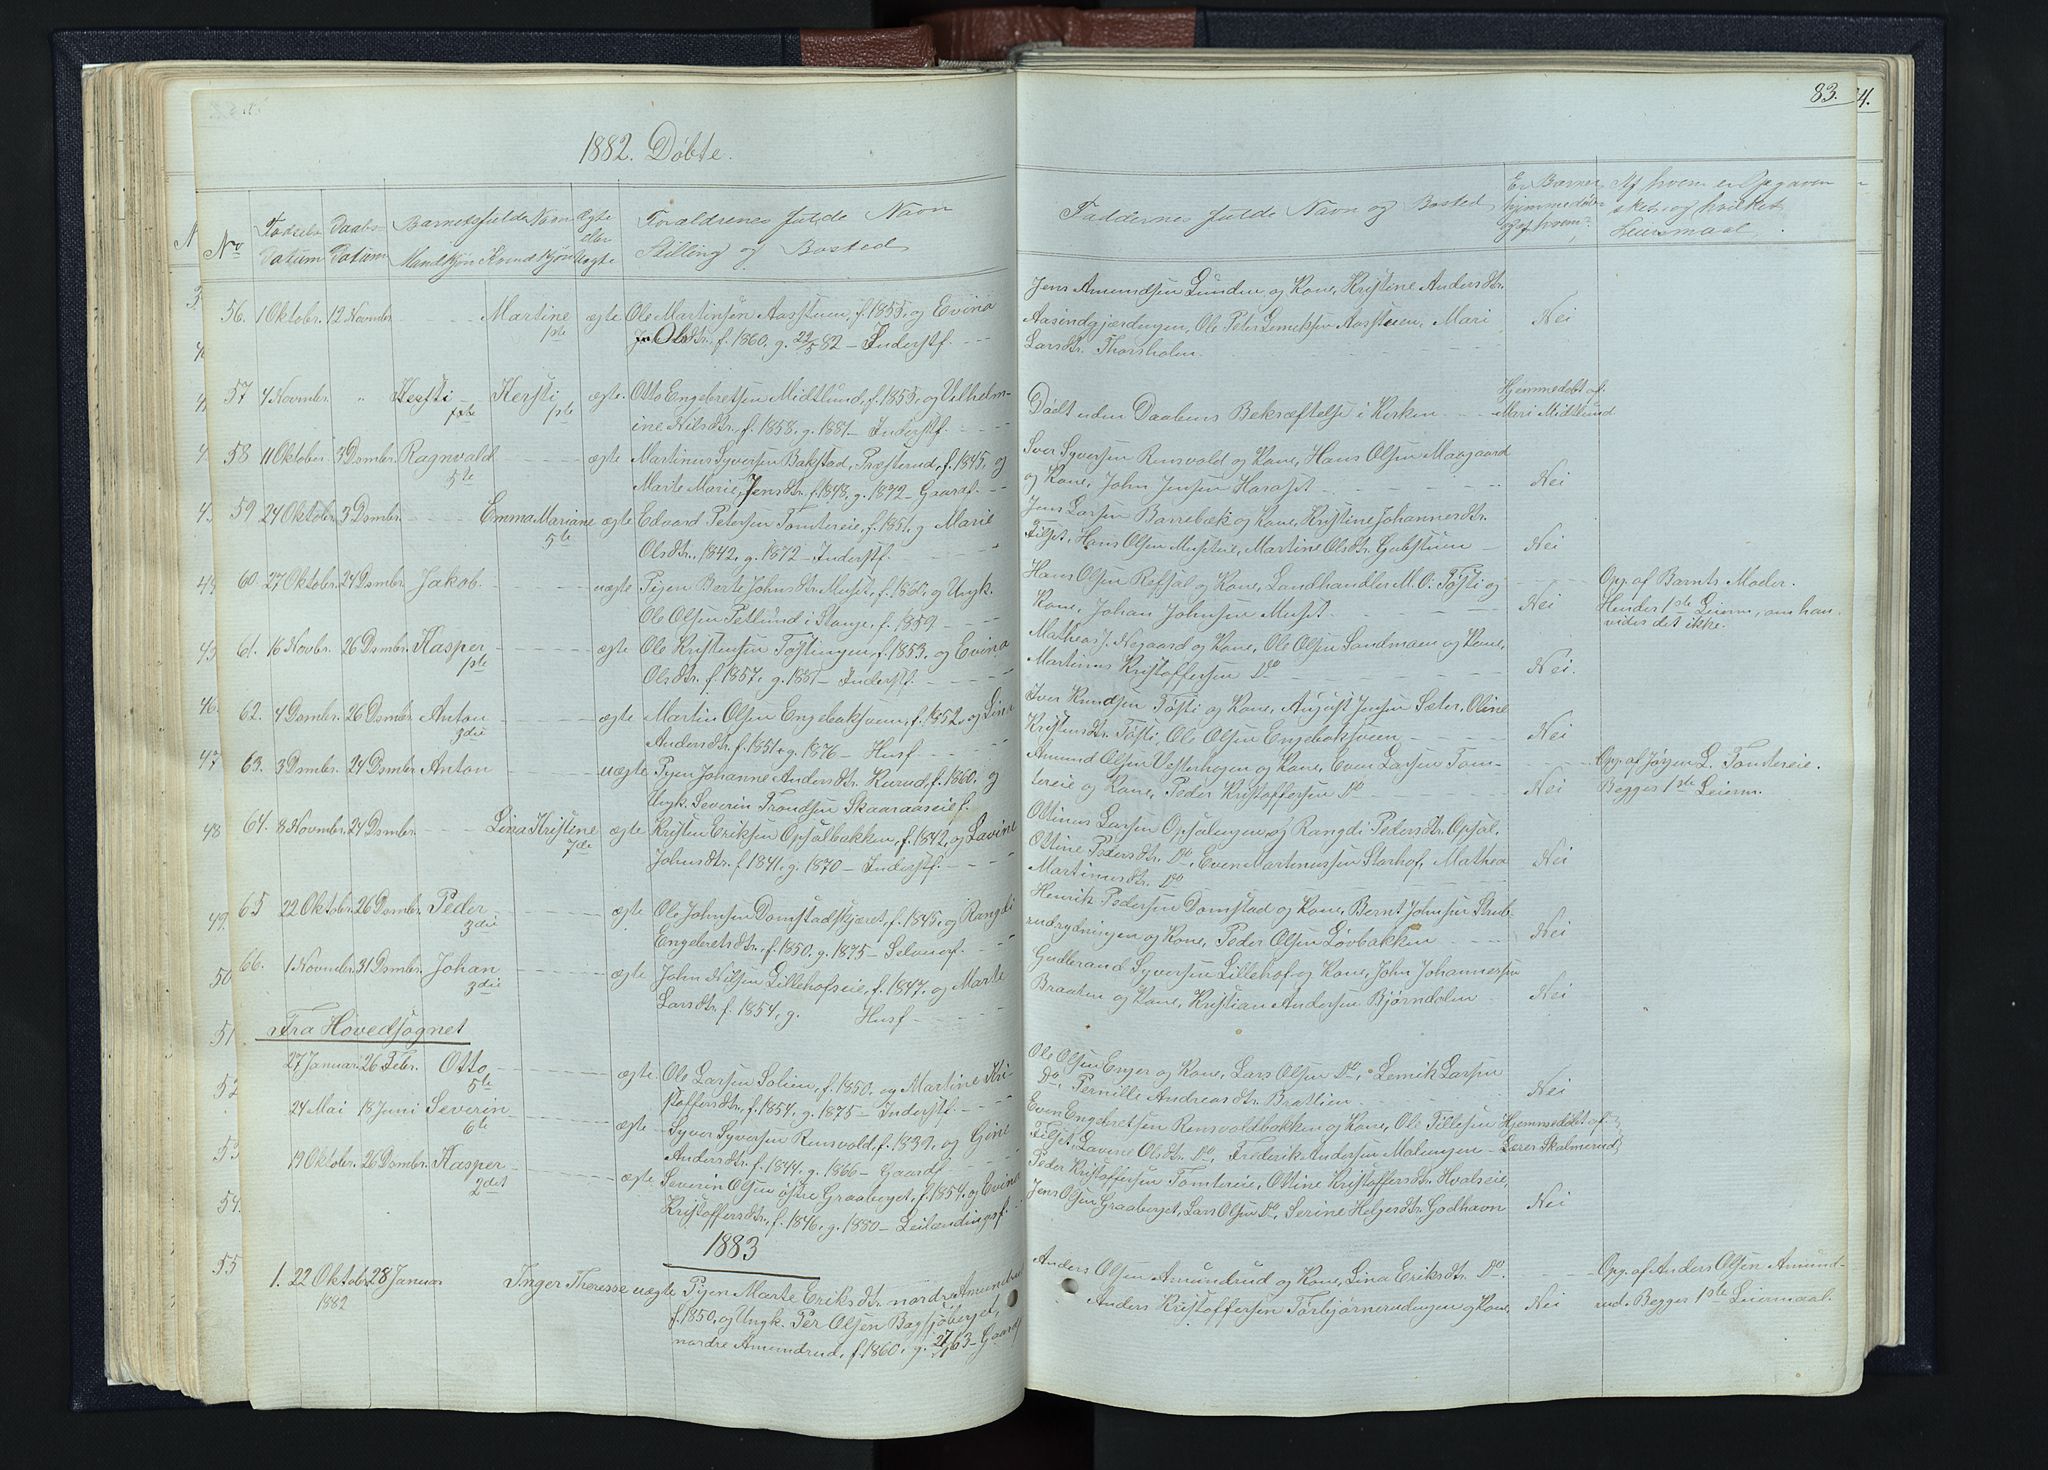 83.
1882. Døbte.
No
Fødsels-
Datum
Daabs-
Datum
Barnets fulde Navn
Mandkjøn Kvindekjøn
Ægte
eller
uægte
Forældrenes fulde Navn
Stilling og Bosted
Faddernes fulde Navn og Bosted
Er Barnet
hjemmedøbt
og af hvem?
Af hvem er Opgaven
sket og hvilket
Leiermaal
56. 1 Oktober. 12 Novmber Martine ægte Ole Martinsen Aasstuen, f. 1855, og Evina
1ste Olsdtr. f. 1860. g. 22/5 82 — Inderstf.
Jens Amundsen Lunden og Kone, Kristine Andersdtr.
Aasindgjærdingen, Ole Peter Lemeksen Aasstuen, Mari Nei
Larsdtr. Thorsholen
57 4 Novmber. " Kersti Kersti ægte. Otto Engebretsen Midtlund, f. 1855, og Vilhelm-
1ste ine Nilsdtr., f. 1858. g. 1881 — Inderstf.
Dødt uden Daabens Bekræftelse i Kirken Hjemmedøbt af
Mari Midtlund
58 11 Oktober 3 Dsmbr. Ragnvald ægte Martinus Syversen Bakstad, Præsterud, f. 1845, og
5te Marte Marie Jensdtr. f. 1848, g. 1872 — Gaardf.
Iver Syversen Rensvold og Kone, Hans Olsen Maagaard
og Kone, John Jensen Haraset Nei
59 24 Oktober 3 Dsmbr. Emma Mariane ægte Edvard Petersen Tomtereie, f. 1851, og Marie
5te Olsdtr., 1842, g. 1872 — Inderstf.
Jens Larsen Barrebæk og Kone, Kristine Johannesdtr.
Filset, Hans Olsen Museteie, Martine Olsdtr. Gubstuen — Nei
60 27 Oktober 24 Dsmbr. Jakob. uægte Pigen Berte Johnsdtr. Muset, f. 1860, og Ungk.
Ole Olsen Petlund i Stange, f. 1859
Hans Olsen Refsal og Kone, Landhandler M. O. Tøfti og
Kone, Johan Johnsen Muset Nei
Opg. af Barnts Moder.
Hendes 1ste Leierm., om han
vides det ikke.
61. 16 Novbr. 26 Dsmbr. Kasper ægte Ole Kristensen Tøftingen, f. 1853, og Evina
1ste Olsdtr. f. 1857, g. 1881 — Inderstf.
Matheas J. Negaard og Kone, Ole Olsen Sandmoen og Kone,
Martinus Kristoffersen Do Nei.
62. 4 Dsmbr. 26 Dsmbr. Anton ægte Martin Olsen Engebaksveen, f. 1852, og Lina
3die Andersdtr. f. 1851, g. 1876 — Husf
Iver Knudsen Tøfti og Kone, August Jensen Sæter, Oline
Kristensdtr. Tøfti, Ole Olsen Engebaksveen Nei
63. 3 Dsmbr. 24 Dsmbr. Anton uægte Pigen Johanne Andersdtr. Rurud, f. 1860, og
Ungk. Severin Trondsen Skaaraaseie f.
Amund Olsen Vesterhagen og Kone, Even Larsen Tom-
tereie og Kone, Peder Kristoffersen Do Nei
Opg. af Jørgen L. Tomtereie.
Begges 1ste Leierm.
64. 8 Novmber 24 Dsmbr. Lina Kristine ægte Kristen Eriksen Opsalbakken, f. 1842, og Lavine
7de Johnsdtr. f. 1841. g. 1870 — Inderstf.
Ottinus Larsen Opsalengen og Rangdi Pedersdtr. Opsal,
Ottine Pedersdtr. Do, Even Martinussen Storhof, Mathea Nei
Martinusdtr. Do
65 22 Oktober 26 Dsmbr. Peder ægte Ole Johnsen Domstadskjæret, f. 1845, og Rangdi
3die Engebretsdtr., f. 1850, g. 1875 — Selveierf.
Henrik Pedersen Domstad og Kone, Bernt Johnsen Stub-
rudrydningen og Kone, Peder Olsen Løvbakken Nei
66. 1 Novmber 31 Dsmbr. Johan ægte John Nilsen Lillehofseie, f. 1847, og Marte
3die Larsdtr. f. 1854, g. Husf
Gudbrand Syversen Lillehof og Kone, John Johannessen
Braaten og Kone, Kristian Andersen Bjørndalen Nei
Fra Hovedsognet
27 Januar 26 Febr. Otto ægte Ole Larsen Solien, f. 1850, og Martine Kri-
5te stoffersdtr. f. 1854, g. 1875 — Inderstf.
Ole Olsen Enger og Kone, Lars Olsen Do, Lemik Larsen
Do, Pernille Andreasdtr. Brattien Nei
24 Mai 18 Juni Severin ægte Syver Syversen Rensvold, f. 1839, og Gine
6te Andersdtr. f. 1844, g. 1866 — Gaardf.
Even Engebretsen Rensvoldbakken og Kone, Ole Tillesen Hjemmedøbt af
Filset, Lavine Olsdtr. Do, Frederik Andersen Malungen — Lærer Skalmerud
19 Oktober. 26 Dsmbr. Kasper ægte Severin Olsen østre Graaberget, f. 1854, og Evina
2det Kristoffersdtr., f. 1846, g. 1880 — Leilændingsf.
Peder Kristoffersen Tomtereie, Ottine Kristoffersdtr. Hvalseie,
Jens Olsen Graaberget, Lars Olsen Do, Serine Helgesdtr. Godhavn Nei
1883
1. 22 Oktober 28 Januar Inger Therese uægte Pigen Marte Eriksdtr. nordre Amundrud
1882 f. 1850, og Ungk. Per Olsen Bagsjøberget,
nordre Amundrud, f. 1860,
Anders Olsen Amundrud og Kone, Lina Eriksdtr. Do.
Anders Kristoffersen Torbjørnrudengen og Kone, Nei
Opg. af Anders Olsen Amund-
rud. Begges 1ste Leiermaal.